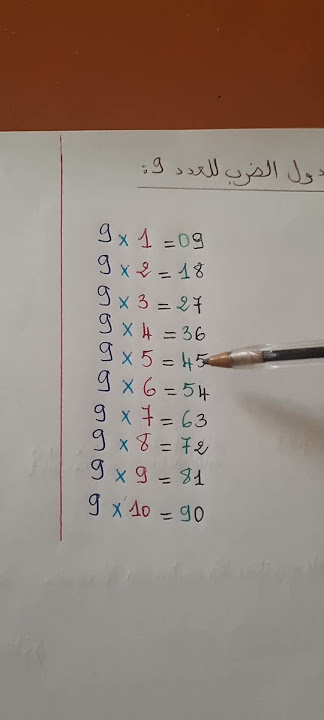 الضرب للعدد 9:
9 × 1 = 09
9 × 2 = 18
9 × 3 = 27
9 × 4 = 36
9 × 5 = 45
9 × 6 = 54
9 × 7 = 63
9 × 8 = 72
9 × 9 = 81
9 × 10 = 90